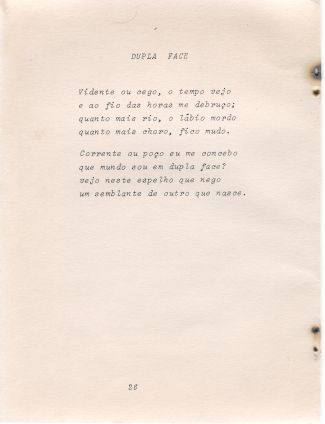 DUPLA FACE
Vidente ou cego, o tempo vejo
e ao fio das horas me debruço;
quanto mais rio, o lábio mordo
quanto mais choro, fico mudo.
Corrente ou poço eu me concebo
que mundo sou em dupla face?
vejo neste espelho que nego
um semblante de outro que nasce.
26